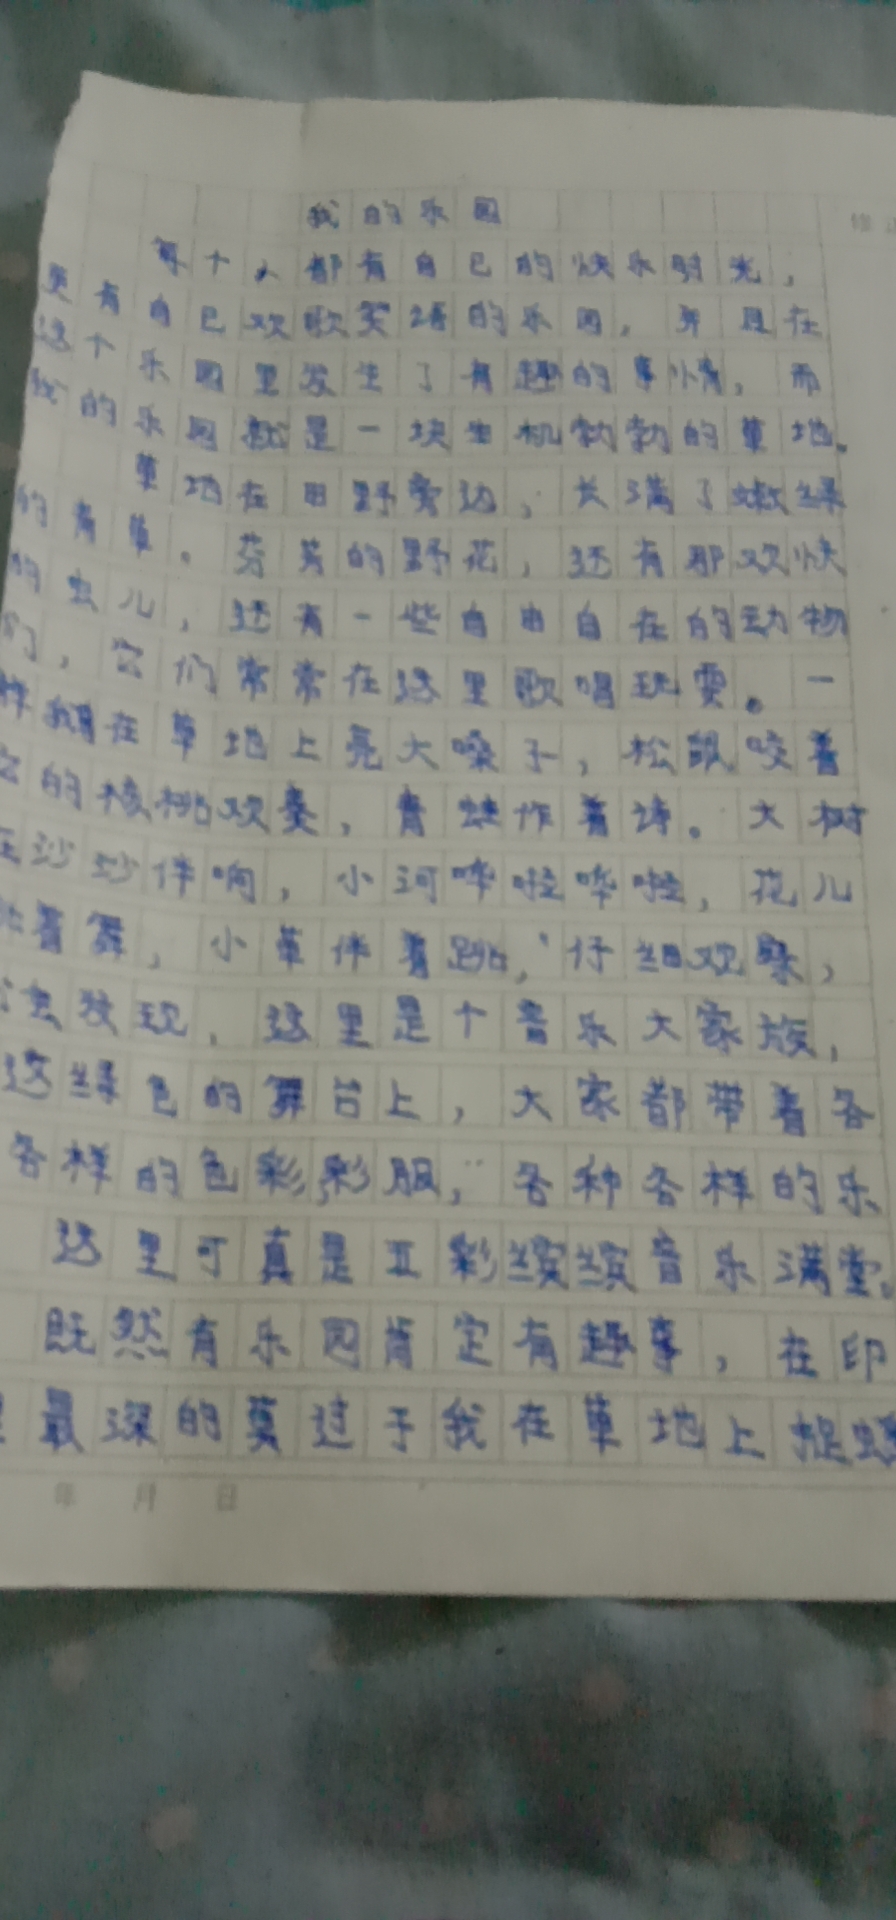 我的乐园
每个人都有自己的快乐时光，
更有自己欢歌笑语的乐园，并且在
这个乐园里发生了有趣的事情，而
我的乐园就是一块生机勃勃的草地。
草地在田野旁边，长满了嫩绿
的青草。芬芳的野花，还有那欢快
的虫儿，还有一些自由自在的动物
们，它们常常在这里歌唱玩耍。一
在草地上亮大嗓子，松鼠咬着
的核桃欢奏，青蛙作着诗。大树
沙沙伴响，小河哗啦哗啦，花儿
着舞，小草伴着跳，仔细观察，
发现，这里是个音乐大家族，
这绿色的舞台上，大家都带着各
各样的色彩彩服，各种各样的乐
这里可真是五彩缤缤音乐满堂。
既然有乐园肯定有趣事，在印
最深的莫过于我在草地上捉
年 月 日